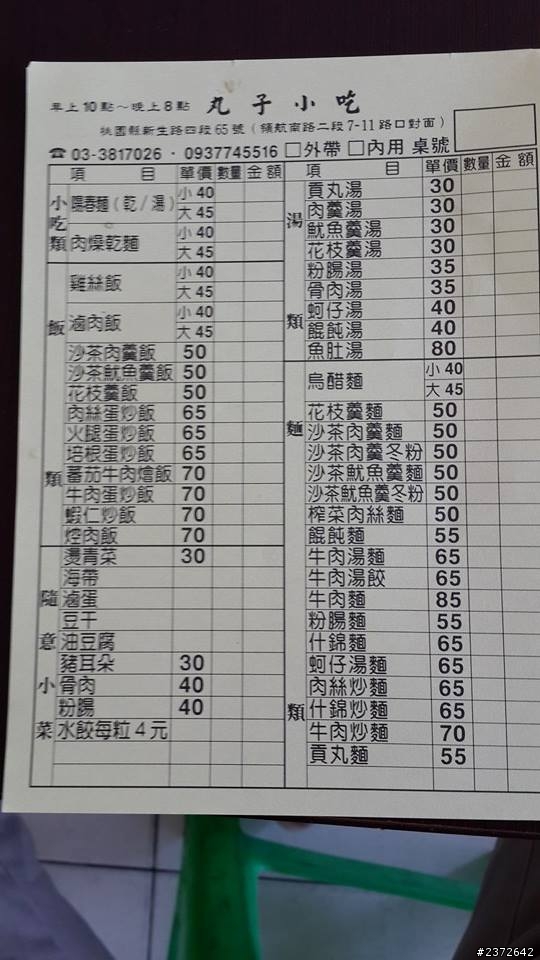 早上10點～晚上8點 丸子小吃
桃園縣新生路四段65號（領航南路二段7-11路口對面）
☎ 03-3817026 · 0937745516 □外帶 □內用 桌號
項目 單價 數量 金額
小吃類
陽春麵（乾／湯） 小 40
大 45
肉燥乾麵 小 40
大 45
飯類
雞絲飯 小 40
大 45
滷肉飯 小 40
大 45
沙茶肉羹飯 50
沙茶魷魚羹飯 50
花枝羹飯 50
肉絲蛋炒飯 65
火腿蛋炒飯 65
培根蛋炒飯 65
蕃茄牛肉燴飯 70
牛肉蛋炒飯 70
蝦仁炒飯 70
焢肉飯 70
隨意小菜
燙青菜 30
海帶
滷蛋
豆干
油豆腐
豬耳朵 30
骨肉 40
粉腸 40
水餃每粒4元
項目 單價 數量 金額
湯類
貢丸湯 30
肉羹湯 30
魷魚羹湯 30
花枝羹湯 30
粉腸湯 35
骨肉湯 35
蚵仔湯 40
餛飩湯 40
魚肚湯 80
麵類
烏醋麵 小 40
大 45
花枝羹麵 50
沙茶肉羹麵 50
沙茶肉羹冬粉 50
沙茶魷魚羹麵 50
沙茶魷魚羹冬粉 50
榨菜肉絲麵 50
餛飩麵 55
牛肉湯麵 65
牛肉湯餃 65
牛肉麵 85
粉腸麵 55
什錦麵 65
蚵仔湯麵 65
肉絲炒麵 65
什錦炒麵 65
牛肉炒麵 70
貢丸麵 55
#2372642